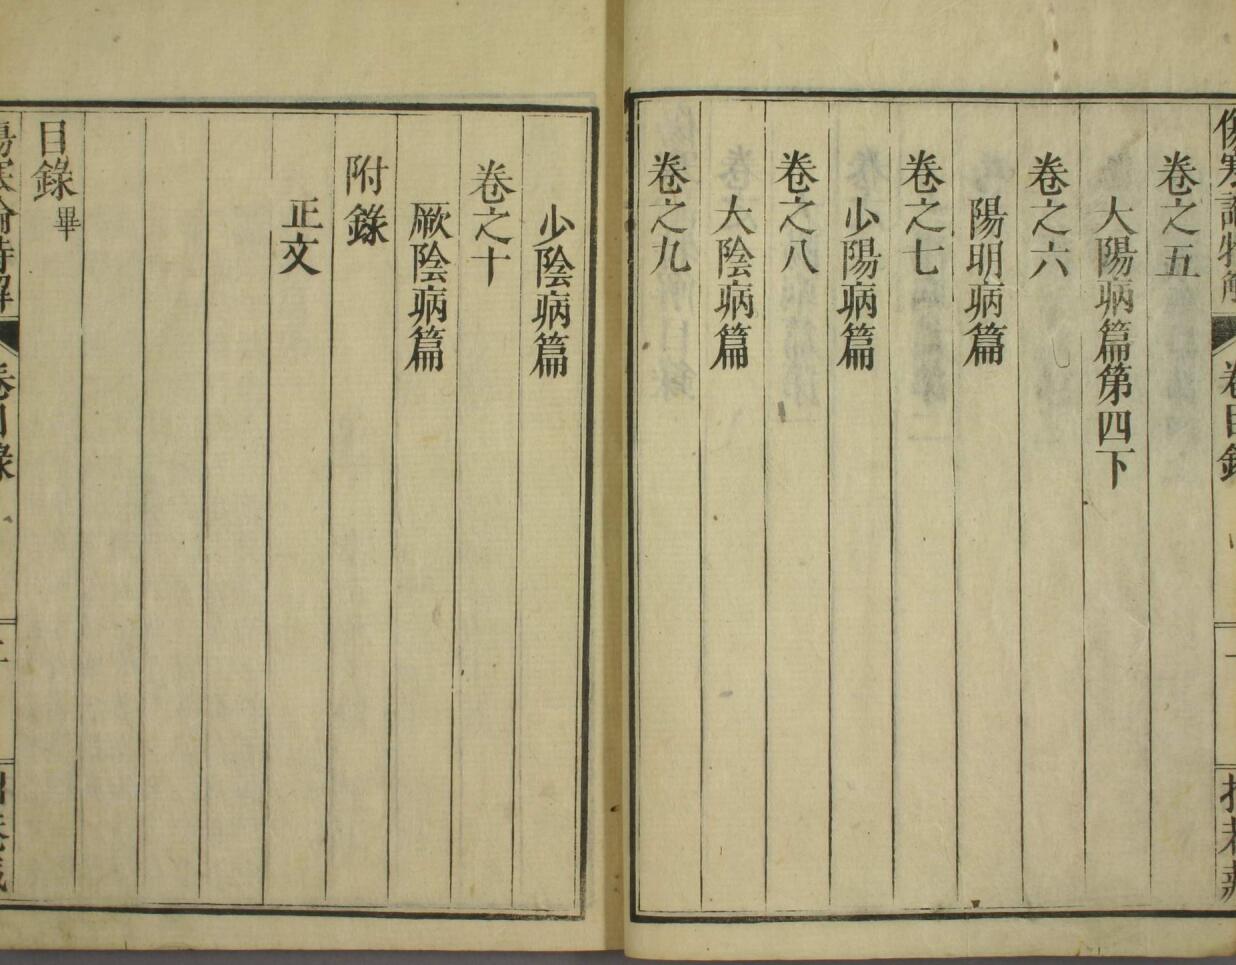 卷之五
大陽病篇第四下
卷之六
陽明病篇
卷之七
少陽病篇
卷之八
大陰病篇
卷之九
少陰病篇
卷之十
厥陰病篇
附錄
正文
目錄畢
傷寒論特解
卷目錄